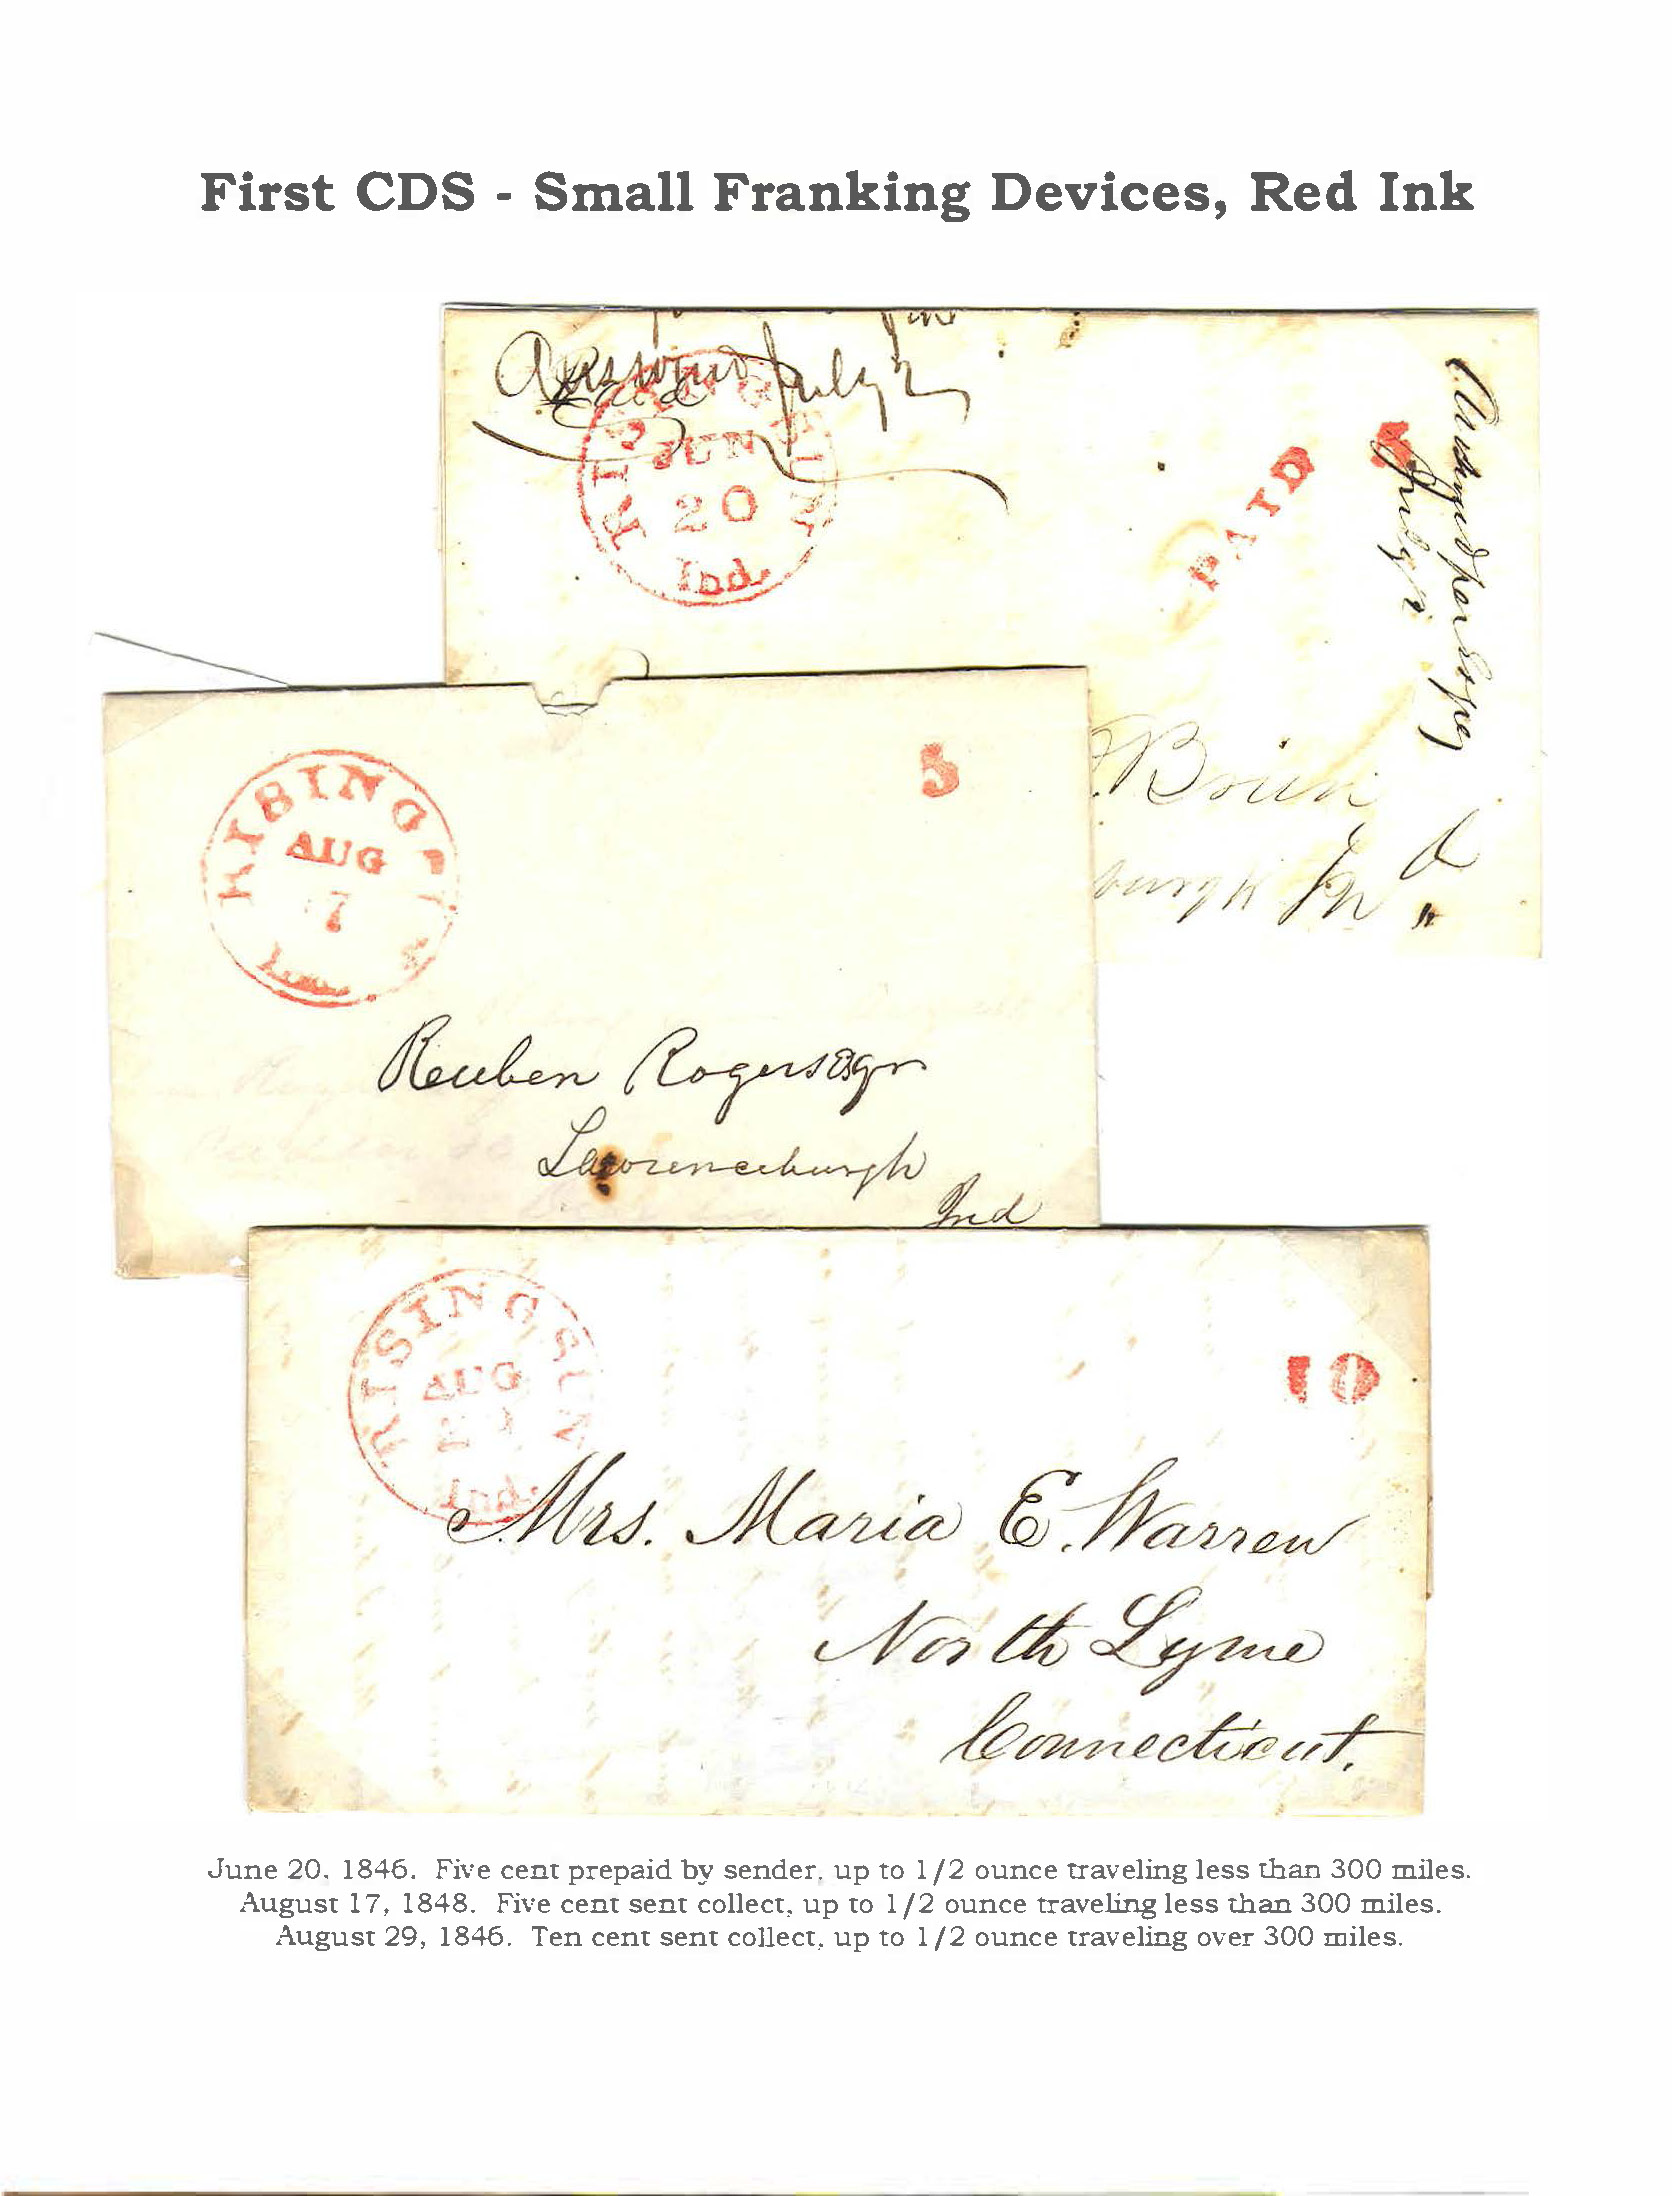 First CDS - Small Franking Devices, Red Ink
July 2
RISING SUN
JUN
20
Ind.
PAID
5
July 2
Brien
burgh Ind
RISING
AUG
7
5
Reuben Rogers Esqr
Lawrenceburgh
Ind
RISING SUN
AUG
Ind.
10
Mrs. Maria E. Warren
North Lyme
Connecticut.
June 20, 1846. Five cent prepaid by sender, up to 1/2 ounce traveling less than 300 miles.
August 17, 1848. Five cent sent collect, up to 1/2 ounce traveling less than 300 miles.
August 29, 1846. Ten cent sent collect, up to 1/2 ounce traveling over 300 miles.